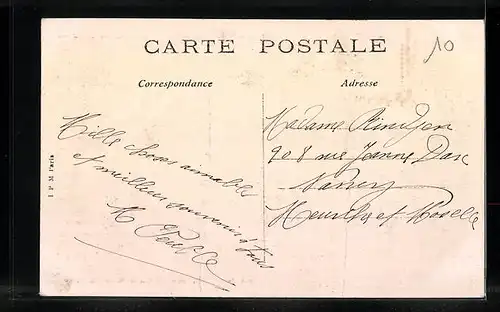 CARTE POSTALE
10
Correspondance
Adresse
Mille choses aimables
et meilleurs souvenirs à tous
M
Madame
908 rue Jeanne Darc
Nancy
Meurthe et Moselle
I P M Paris